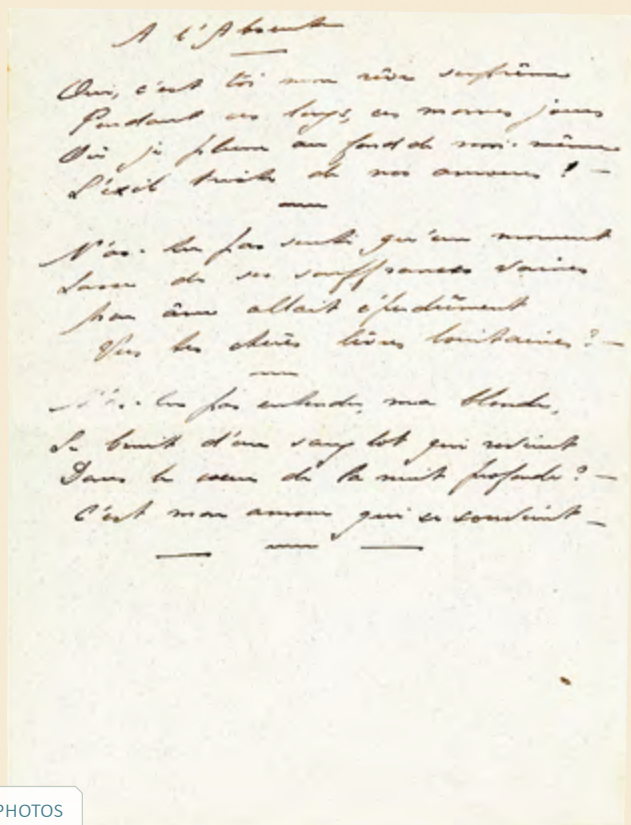 A l'Absente
Oui, c'est toi mon rêve suprême
Pendant ces longs, ces mornes jours
Où je pleure au fond de moi-même
L'exil triste de nos amours ! —
N'as-tu pas senti qu'un moment
Lasse de ses souffrances vaines
Mon âme allait éperdûment
Vers tes chères lèvres lointaines ? —
N'as-tu pas entendu, ma blonde,
Le bruit d'un sanglot qui revient
Dans le cœur de la nuit profonde ? —
C'est mon amour qui se souvient —
PHOTOS